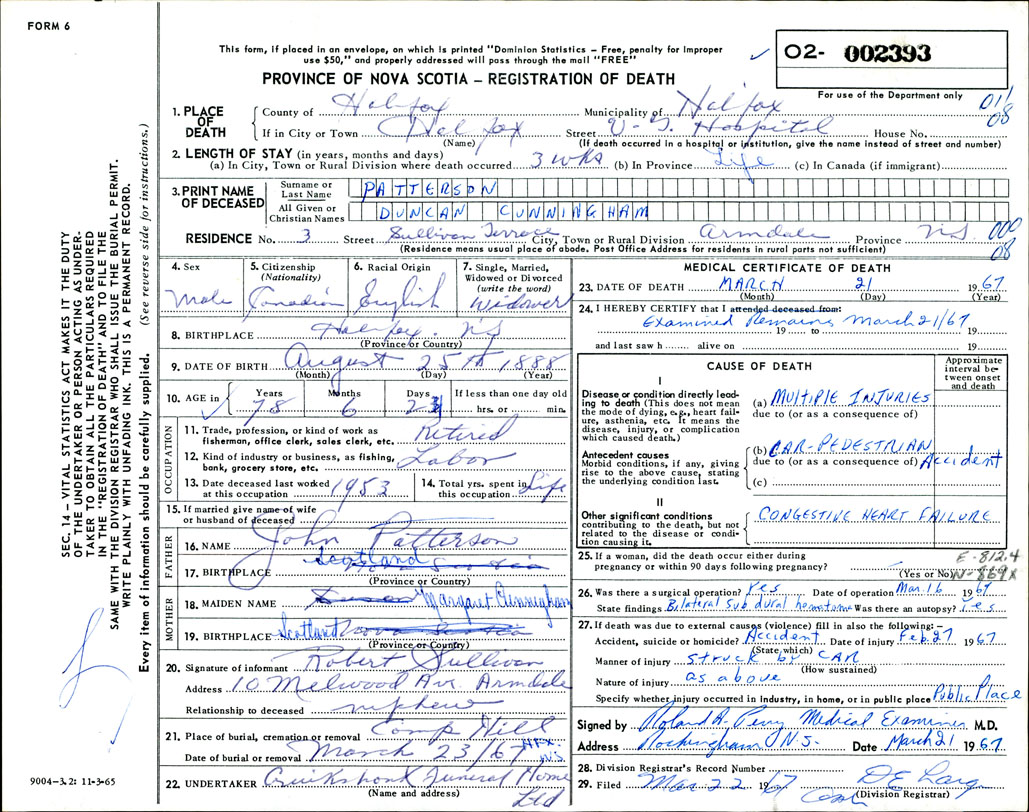 FORM 6
This form, if placed in an envelope, on which is printed "Dominion Statistics – Free, penalty for improper
use $50," and properly addressed will pass through the mail "FREE"
PROVINCE OF NOVA SCOTIA – REGISTRATION OF DEATH
O2- 002393
For use of the Department only
011
08
1. PLACE OF DEATH
County of Halifax Municipality of Halifax
If in City or Town Halifax Street V-G. Hospital House No.
(Name) (If death occurred in a hospital or institution, give the name instead of street and number)
2. LENGTH OF STAY (in years, months and days)
(a) In City, Town or Rural Division where death occurred 3 wks (b) In Province Life (c) In Canada (if immigrant)
3. PRINT NAME OF DECEASED
Surname or Last Name PATTERSON
All Given or Christian Names DUNCAN CUNNINGHAM
RESIDENCE No. 3 Street Sullivan Terrace City, Town or Rural Division Armdale Province N.S. 000
08
(Residence means usual place of abode. Post Office Address for residents in rural parts not sufficient)
4. Sex
Male
5. Citizenship (Nationality)
Canadian
6. Racial Origin
English
7. Single, Married, Widowed or Divorced (write the word)
Widower
8. BIRTHPLACE Halifax. N.S
(Province or Country)
9. DATE OF BIRTH August 25th 1888
(Month) (Day) (Year)
10. AGE in
Years Months Days If less than one day old
78 6 23 hrs. or min.
OCCUPATION
11. Trade, profession, or kind of work as fisherman, office clerk, sales clerk, etc. Retired
12. Kind of industry or business, as fishing, bank, grocery store, etc. Labor
13. Date deceased last worked at this occupation 1953
14. Total yrs. spent in this occupation Life
15. If married give name of wife or husband of deceased
FATHER
16. NAME John Patterson
17. BIRTHPLACE Scotland Nova Scotia
(Province or Country)
MOTHER
18. MAIDEN NAME Susan Margaret Cunningham
19. BIRTHPLACE Scotland Nova Scotia
(Province or Country)
20. Signature of informant Robert Sullivan
Address 10 Melwood Ave Armdale
Relationship to deceased nephew
21. Place of burial, cremation or removal Camp Hill
Date of burial or removal March 23/67 HFX. N.S.
22. UNDERTAKER Cruikshank Funeral Home
(Name and address) Ltd
MEDICAL CERTIFICATE OF DEATH
23. DATE OF DEATH MARCH 21 1967
(Month) (Day) (Year)
24. I HEREBY CERTIFY that I attended deceased from:
Examined Remains March 21/67
19 to 19
and last saw h alive on 19
CAUSE OF DEATH
Approximate interval between onset and death
I
Disease or condition directly leading to death (This does not mean the mode of dying, e.g., heart failure, asthenia, etc. It means the disease, injury, or complication which caused death.)
(a) MULTIPLE INJURIES
due to (or as a consequence of)
Antecedent causes
Morbid conditions, if any, giving rise to the above cause, stating the underlying condition last.
(b) CAR-PEDESTRIAN
due to (or as a consequence of) Accident
(c)
II
Other significant conditions contributing to the death, but not related to the disease or condition causing it.
CONGESTIVE HEART FAILURE
25. If a woman, did the death occur either during pregnancy or within 90 days following pregnancy?
(Yes or No)
E-812.4
N-869X
26. Was there a surgical operation? Yes Date of operation Mar. 16 1967
State findings Bilateral Sub dural hematoma Was there an autopsy? Yes
27. If death was due to external causes (violence) fill in also the following: –
Accident, suicide or homicide? Accident Date of injury Feb. 27 1967
(State which)
Manner of injury struck by CAR
(How sustained)
Nature of injury as above
Specify whether injury occurred in Industry, in home, or in public place Public Place
Signed by Roland A. Perry Medical Examiner M.D.
Address Rockingham N.S. Date March 21 1967
28. Division Registrar's Record Number
29. Filed Mar 22 1967
(Division Registrar)
SEC. 14 – VITAL STATISTICS ACT MAKES IT THE DUTY
OF THE UNDERTAKER OR PERSON ACTING AS UNDER-
TAKER TO OBTAIN ALL THE PARTICULARS REQUIRED
IN THE "REGISTRATION OF DEATH" AND TO FILE THE
SAME WITH THE DIVISION REGISTRAR WHO SHALL ISSUE THE BURIAL PERMIT.
WRITE PLAINLY WITH UNFADING INK. THIS IS A PERMANENT RECORD.
Every item of information should be carefully supplied. (See reverse side for instructions.)
9004-3.2: 11-3-65